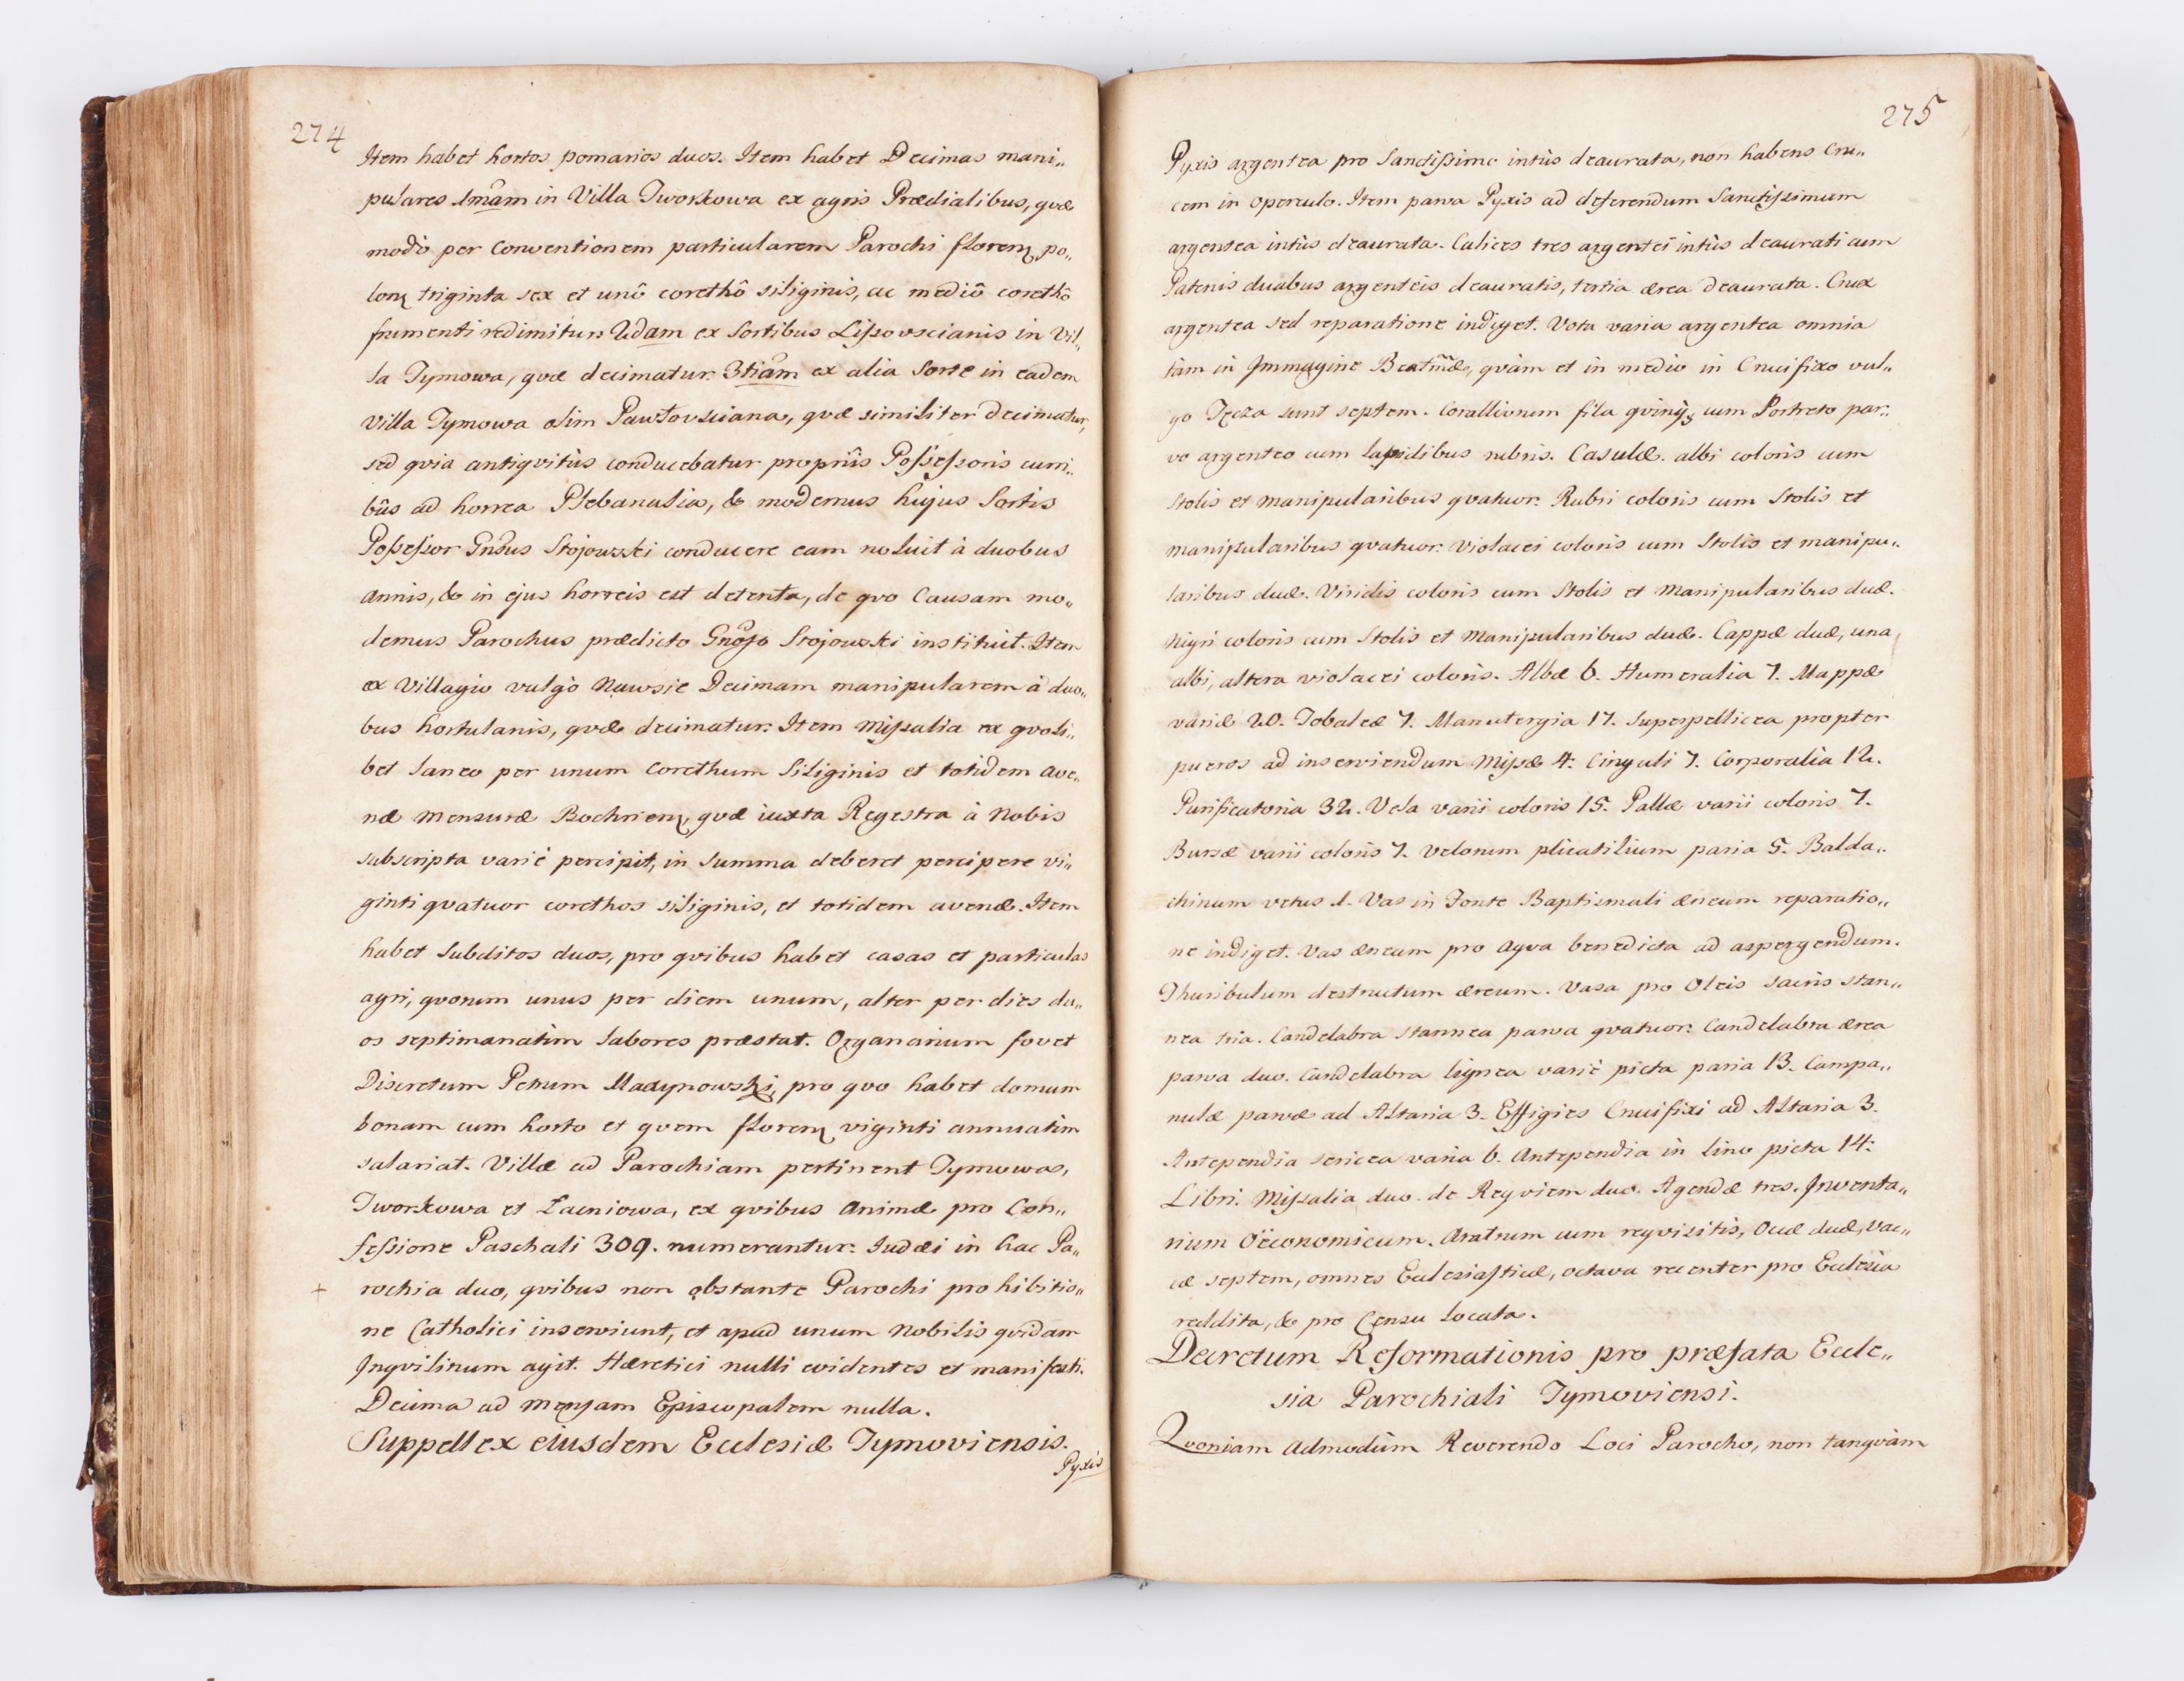 274
Item habet hortos pomarios duos. Item habet Decimas mani„
pulares 1mam in Villa Tworkowa ex agris Prædialibus, qvæ
modo per Conventionem particularem Parochi floren. po„
lon. triginta sex et unô corethô siliginis, ac mediô corethô
frumenti redimitur. 2dam ex Sortibus Lissovscianis in Vil„
la Tymowa, qvæ decimatur. 3tiam ex alia Sorte in eadem
Villa Tymowa olim Pawłovsciana, qvæ similiter decimatur,
sed qvia antiqvitùs conducebatur propriis Possessoris curri„
bûs ad horrea Plebanalia, & modernus hujus Sortis
Possessor Gnõsus Stojowski conducere eam noluit à duobus
annis, & in ejus horreis est detenta, de qvo Causam mo„
dernus Parochus prædicto Gnõso Stojowski instituit. Item
ex Villagio vulgò Nawsie Decimam manipularem à duo„
bus hortulanis, qvæ decimatur. Item Missalia ex qvoli„
bet laneo per unum corethum Siliginis et totidem ave„
næ mensuræ Bochnien. qvæ iuxta Regestra à Nobis
subscripta variè percipit, in summa deberet percipere vi„
ginti qvatuor corethos siliginis, et totidem avenæ. Item
habet Subditos duos, pro qvibus habet casas et particulas
agri, qvorum unus per diem unum, alter per dies du„
os septimanatim labores præstat. Organarium fovet
Discretum Petrum Maxynowski, pro qvo habet domum
bonam cum horto et qvem floren. viginti annuatim
salariat. Villæ ad Parochiam pertinent Tymowa,
Tworkowa et Łaeniowa, ex qvibus animæ pro Con„
fessione Paschali 309. numerantur. Iudæi in hac Pa„
rochia duo, qvibus non obstante Parochi prohibitio„
ne Catholici inserviunt, et apud unum Nobilis qvidam
Inqvilinum agit. Hæretici nulli evidentes et manifesti.
Decima ad mensam Episcopalem nulla.
Suppellex eiusdem Ecclesiæ Tymoviensis.
Pyxis
275
Pyxis argentea pro Sanctissimo intùs deaurata, non habens Cru„
cem in operculo. Item parva Pyxis ad deferendum Sanctissimum
argentea intùs deaurata. Calices tres argentei intùs deaurati cum
Patenis duabus argenteis deauratis, tertia ærea deaurata. Crux
argentea sed reparatione indiget. Vota varia argentea omnia
tàm in Immagine Beatmæ, qvàm et in medio in Crucifixo vul„
go Tęcza sunt septem. Corallionum fila qvinq; cum Portreto par„
vo argenteo cum lapidibus rubris. Casulæ. albi coloris cum
Stolis et manipularibus qvatuor. Rubri coloris cum Stolis et
manipularibus qvatuor. Violacei coloris cum Stolis et manipu„
laribus duæ. Viridis coloris cum Stolis et Manipularibus duæ.
Nigri coloris cum Stolis et Manipularibus duæ. Cappæ duæ, una
albi, altera violacei coloris. Albæ 6. Humeralia 7. Mappæ
variæ 20. Tobaleæ 7. Manutergia 17. Superpellicea propter
pueros ad inserviendum Missæ 4. Cinguli 7. Corporalia 12.
Purificatoria 32. Vela varii coloris 15. Pallæ varii coloris 7.
Bursæ varii coloris 7. Velorum plicatilium paria 5. Balda„
chinum vetus 1. Vas in Fonte Baptismali æneum reparatio„
ne indiget. Vas æneum pro aqva benedicta ad aspergendum.
Thuribulum destructum æreum. Vasa pro Oleis sacris stan„
nea tria. Candelabra stannea parva qvatuor. Candelabra ærea
parva duo. Candelabra lignea variè picta paria 13. Campa„
nulæ parvæ ad Altaria 3. Effigies Crucifixi ad Altaria 3.
Antependia sericea varia 6. Antependia in lino picta 14.
Libri. Missalia duo. de Reqviem duo. Agendæ tres. Inventa„
rium Oëconomicum. Aratrum cum reqvisitis, Ocæ duæ, Vac„
cæ septem, omnes Ecclesiasticæ, octava recenter pro Ecclesia
reddita, & pro Censu locata.
Decretum Reformationis pro præfata Eccle„
sia Parochiali Tymoviensi.
Qvoniam Admodùm Reverendo Loci Parocho, non tanqvàm